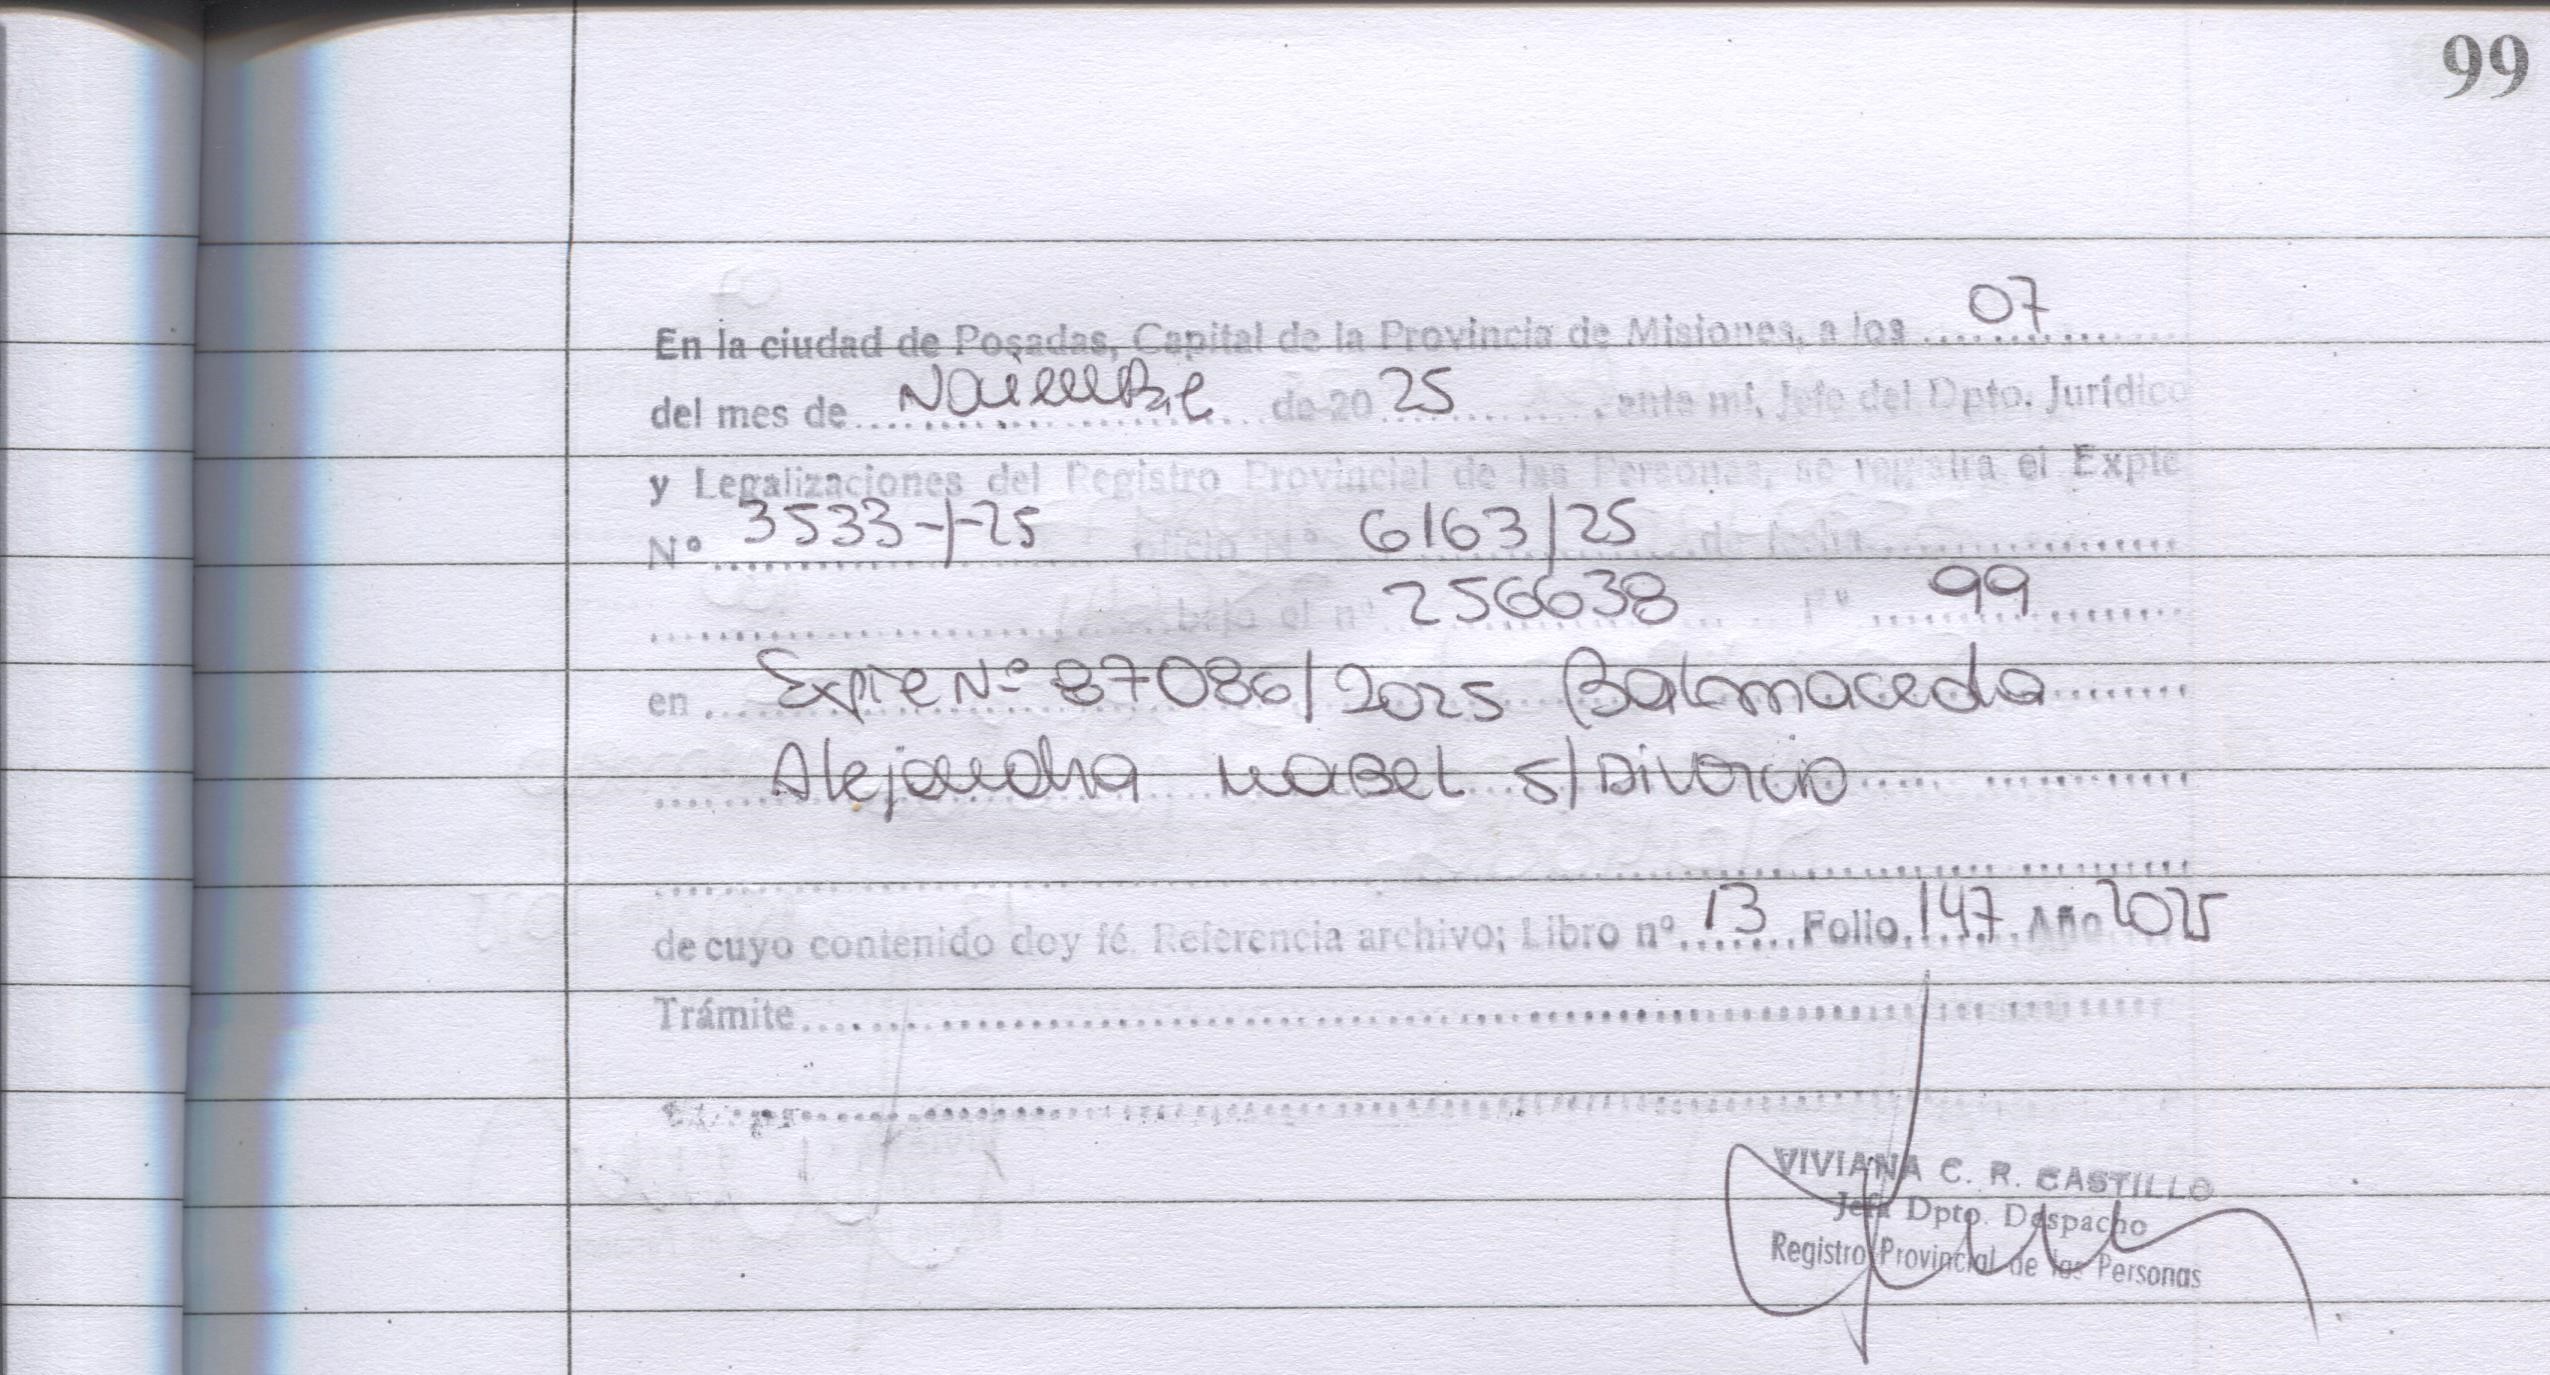 99
En la ciudad de Posadas, Capital de la Provincia de Misiones, a los 07
del mes de Noviembre de 20 25, ante mí, Jefe del Dpto. Jurídico
y Legalizaciones del Registro Provincial de las Personas, se registra el Expte
Nº 3533-/-25 oficio Nº 6163/25 de fecha
bajo el nº 256638 Fº 99
en Expte Nº 87086/2025 Balmaceda
Alejandra Mabel s/Divorcio
de cuyo contenido doy fé. Referencia archivo; Libro nº 13 Folio 147 Año 2025
Trámite
VIVIANA C. R. CASTILLO
Jefa Dpto. Despacho
Registro Provincial de las Personas